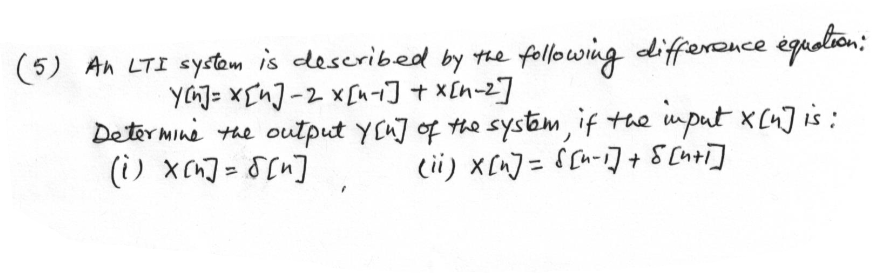 (5) An LTI system is described by the following difference equation:
y[n]= x[n] -2 x[n-1] + x[n-2]
Determine the output y[n] of the system, if the input x[n] is :
(i) x[n] = δ[n] , (ii) x[n] = δ[n-1] + δ[n+1]